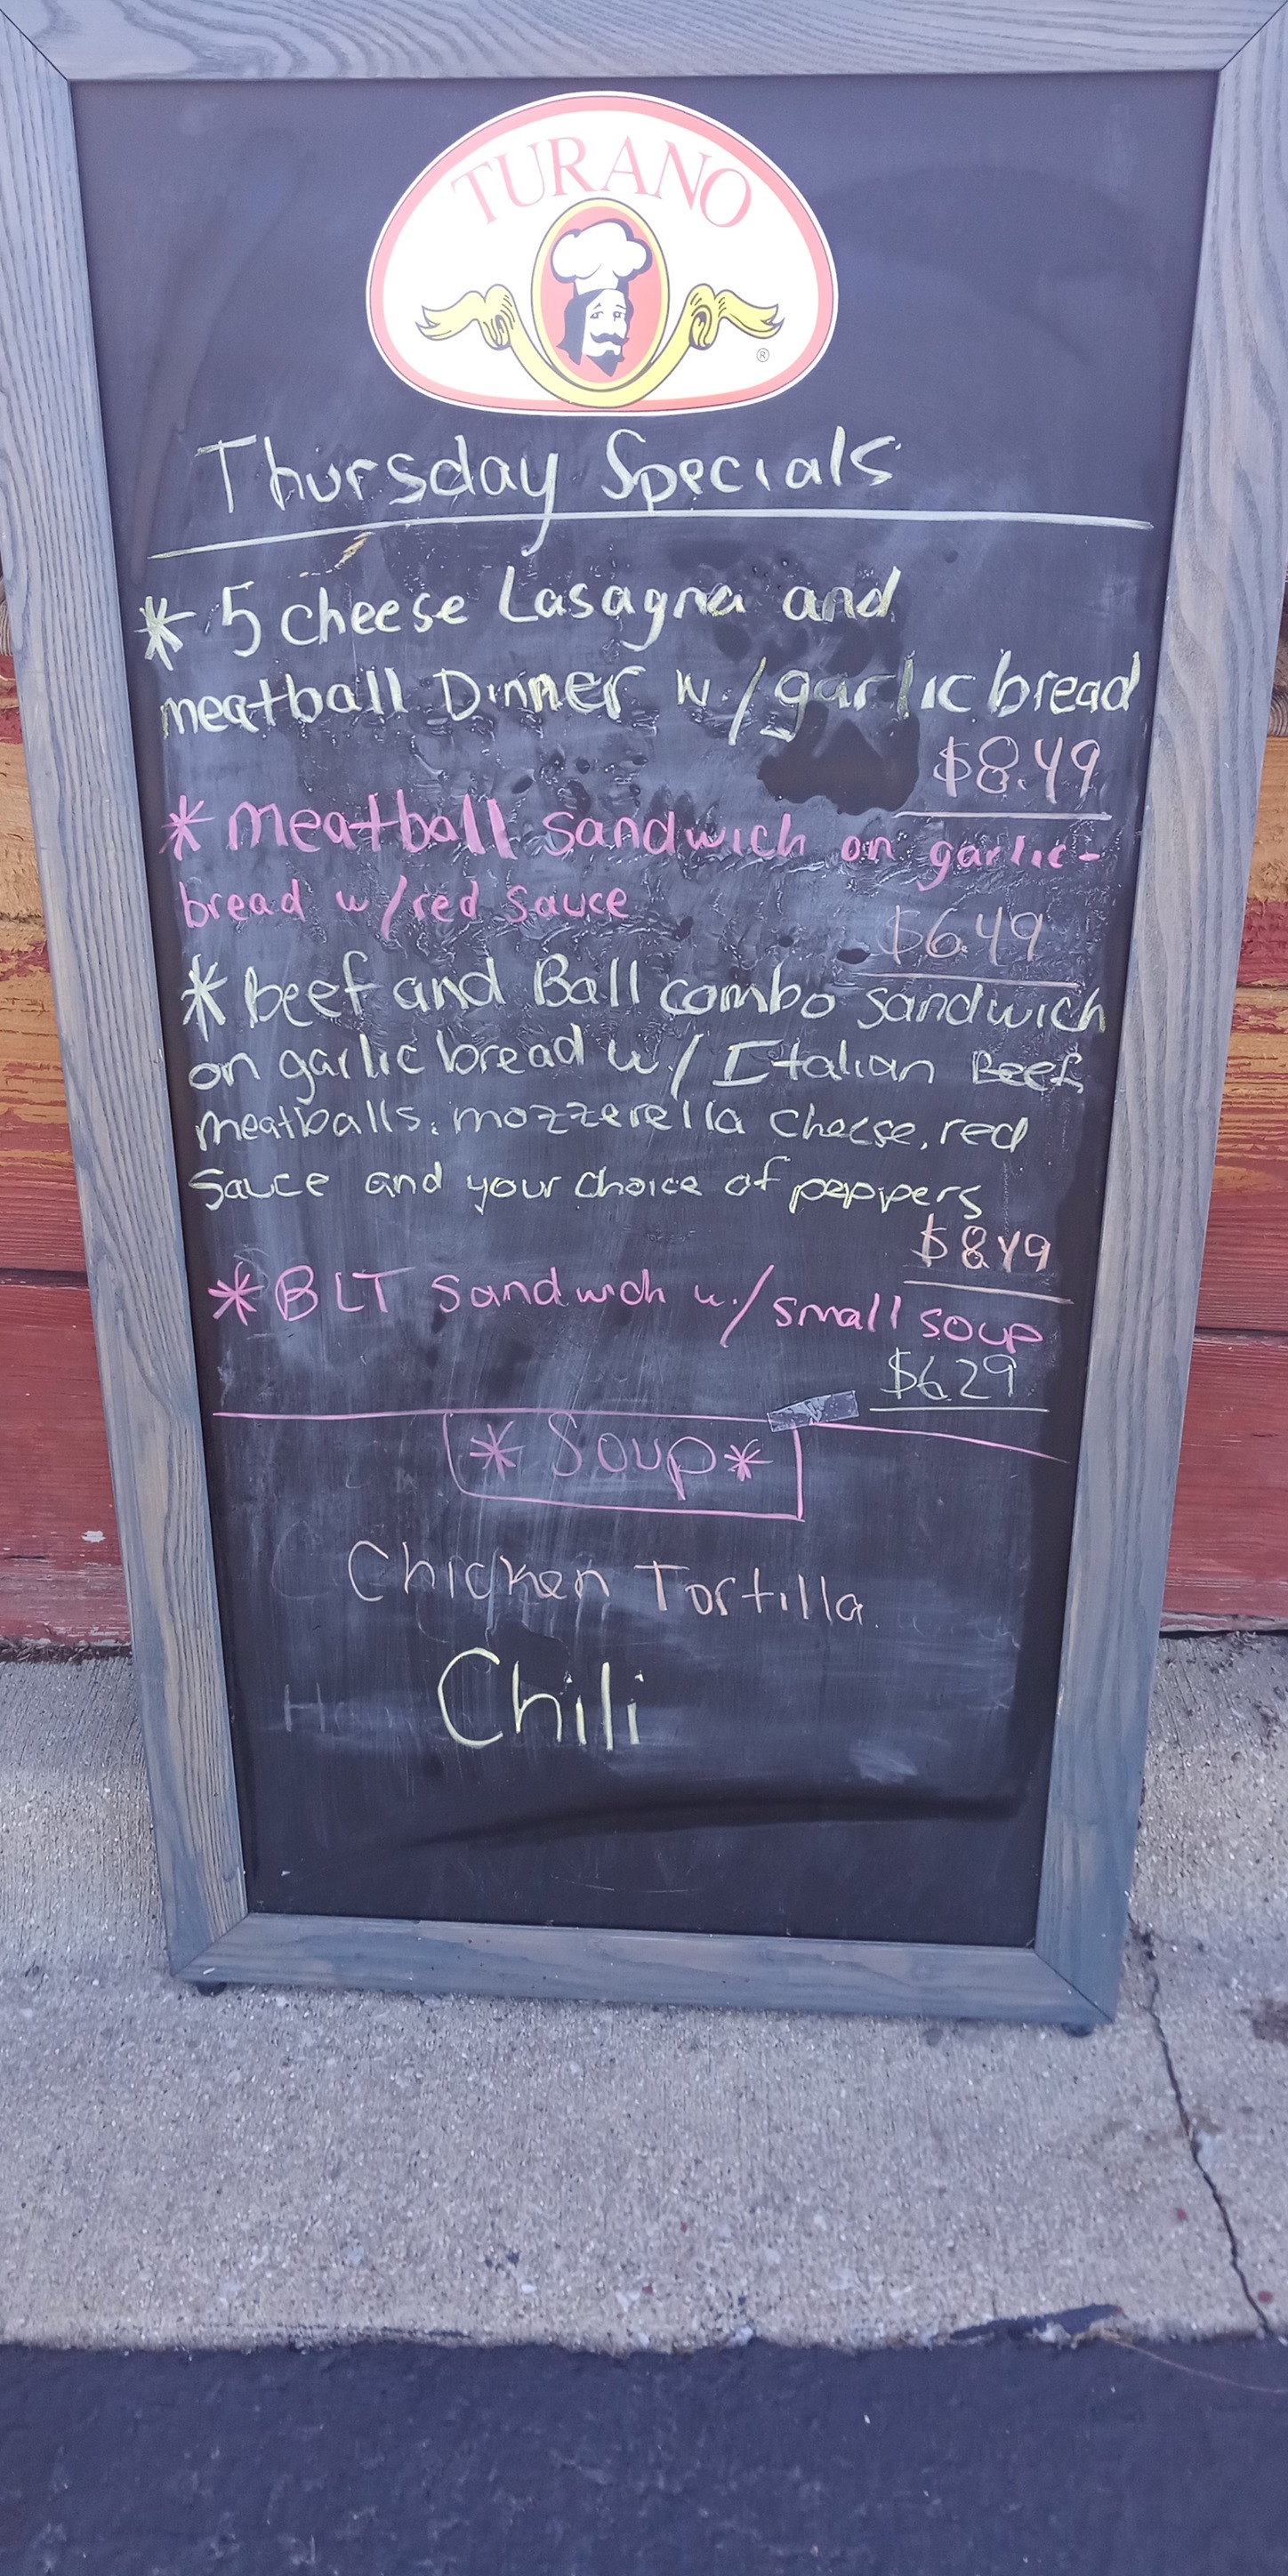 TURANO
®
Thursday Specials
* 5 cheese Lasagna and
meatball Dinner w./garlic bread
$8.49
* Meatball Sandwich on garlic-
bread w/red Sauce
$6.49
* Beef and Ball combo sandwich
on garlic bread w./ Italian Beef,
meatballs, mozzerella cheese, red
Sauce and your choice of peppers
$8.49
* BLT Sandwich w./small soup
$6.29
* Soup *
Chicken Tortilla
Chili